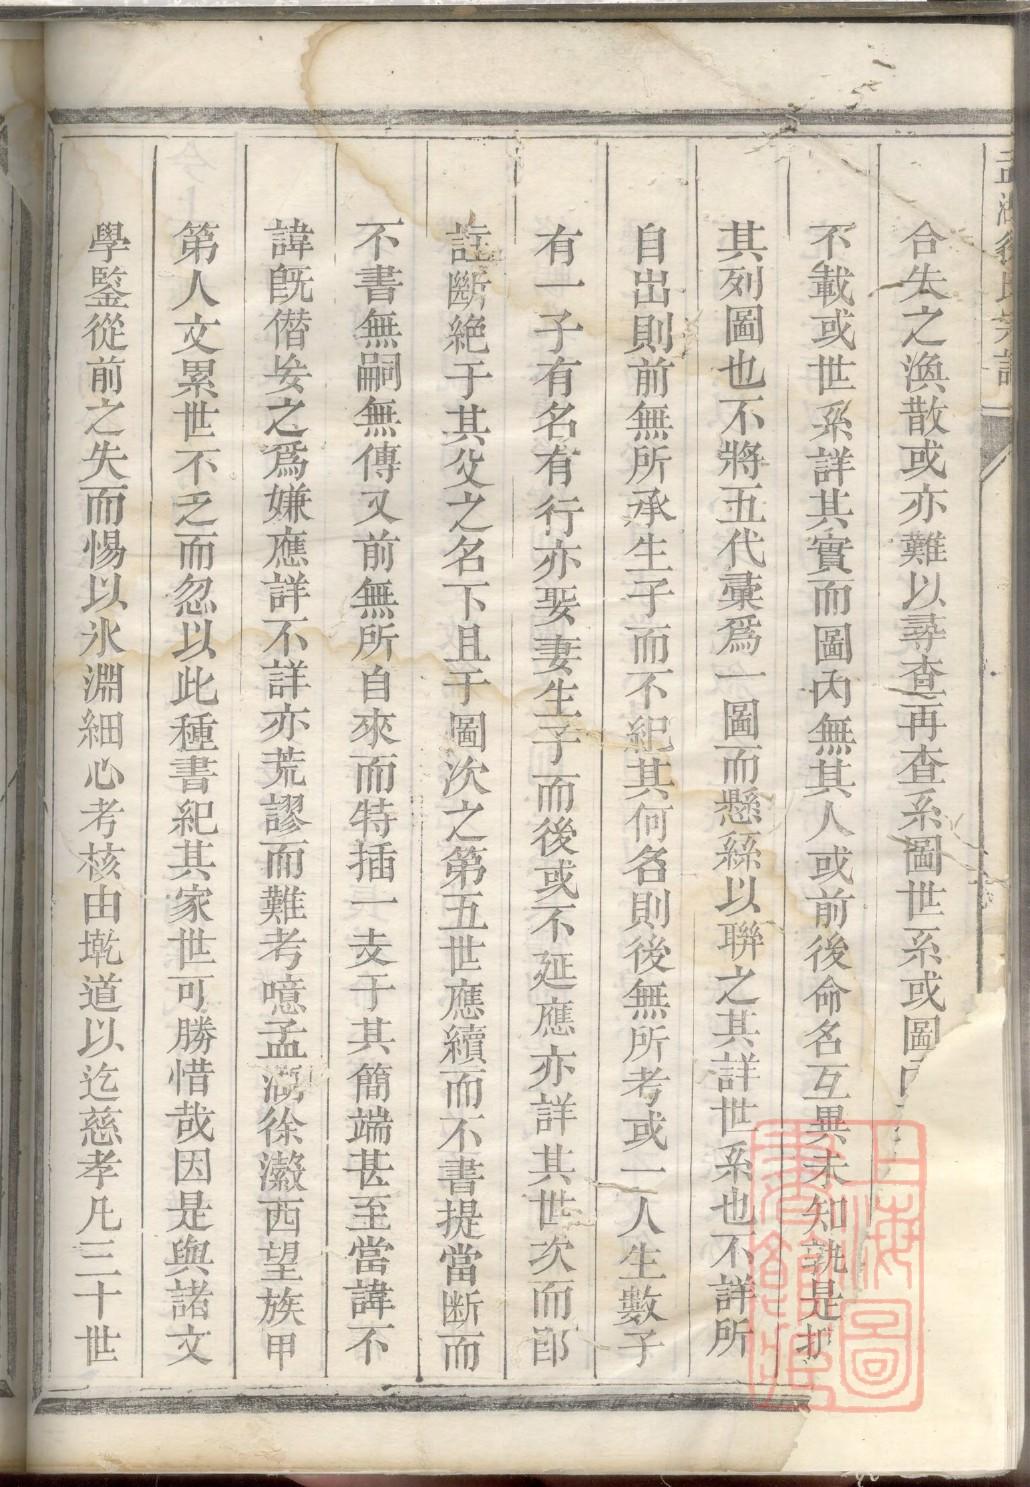 孟湖徐氏宗譜
合失之渙散或亦難以尋查再查系圖世系或圖
不載或世系詳其實而圖內無其人或前後命名互異未知孰是
其列圖也不將五代彙爲一圖而懸絲以聯之其詳世系也不詳所
自出則前無所承生子而不紀其何名則後無所考或一人生數子
有一子有名有行亦娶妻生子而後或不延應亦詳其世次而卽
註斷絶于其父之名下且于圖次之第五世應續而不書提當断而
不書無嗣無傳又前無所自來而特插一支于其簡端甚至當諱不
諱旣僭妄之爲嫌應詳不詳亦荒謬而難考噫孟湖徐瀫西望族甲
第人文累世不乏而忽以此種書紀其家世可勝惜哉因是與諸文
學鑒從前之失而惕以氷淵細心考核由墘道以迄慈孝凡三十世
上海圖書館藏